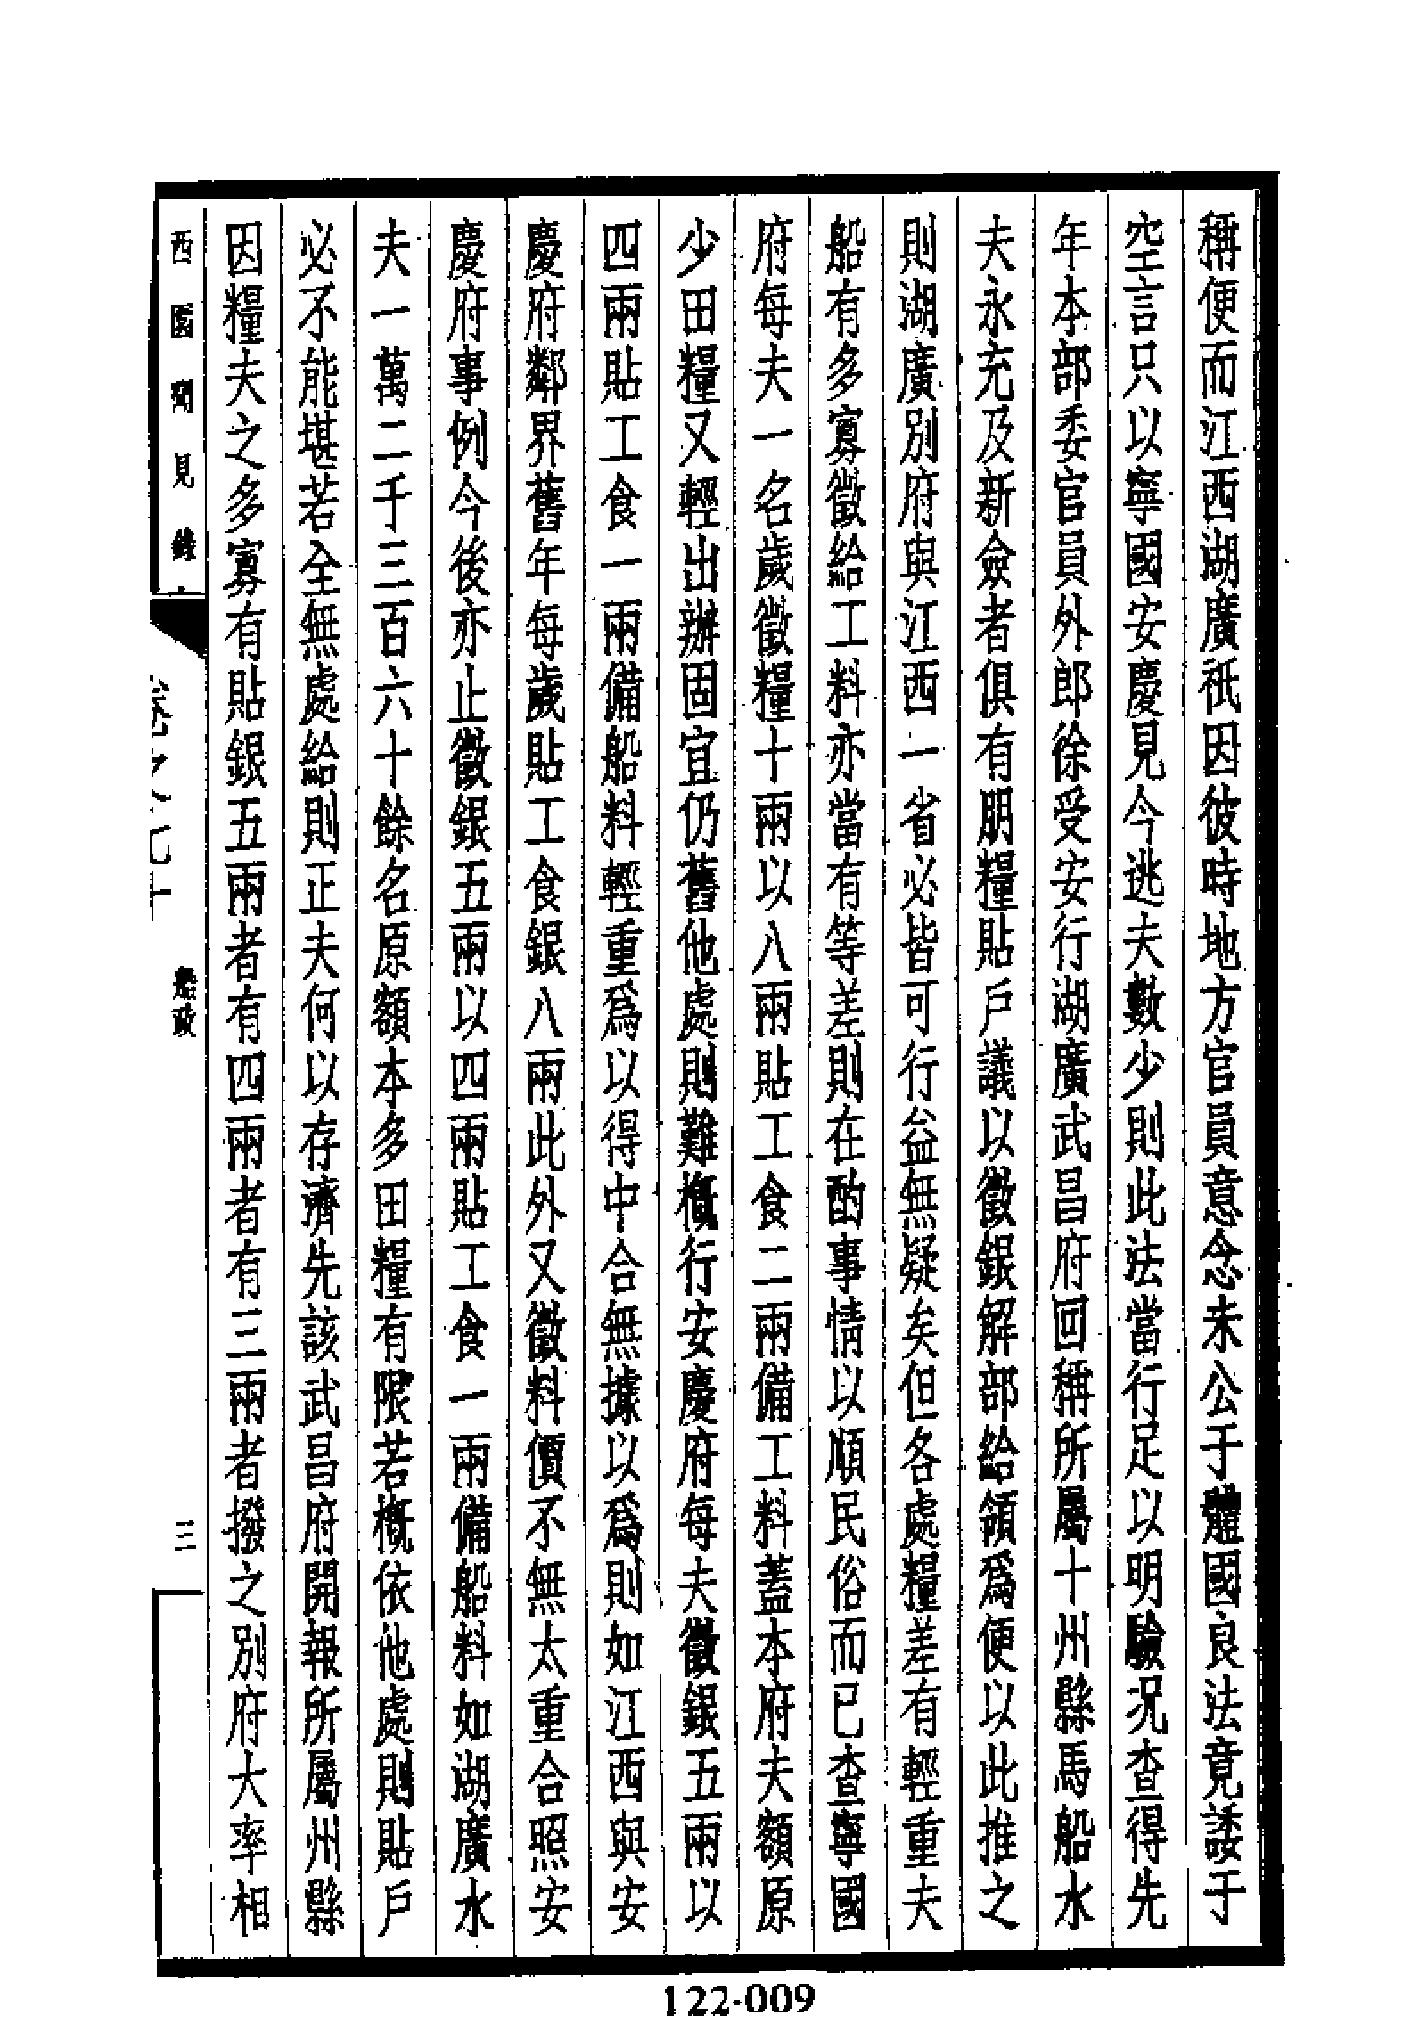 稱便而江西湖廣祇因彼時地方官員意念未公于體國良法竟諉于
空言只以寧國安慶見今逃夫數少則此法當行足以明驗况查得先
年本部委官員外郎徐受安行湖廣武昌府回稱所屬十州縣馬船水
夫永充及新僉者俱有朋糧貼戶議以徵銀解部給領爲便以此推之
則湖廣別府與江西一省必皆可行益無疑矣但各處糧差有輕重夫
船有多寡徵給工料亦當有等差則在酌事情以順民俗而已查寧國
府每夫一名歲徵糧十兩以八兩貼工食二兩備工料蓋本府夫額原
少田糧又輕出辦固宜仍舊他處則難槪行安慶府每夫徵銀五兩以
四兩貼工食一兩備船料輕重爲以得中合無據以爲則如江西與安
慶府鄰界舊年每歲貼工食銀八兩此外又徵料價不無太重合照安
慶府事例今後亦止徵銀五兩以四兩貼工食一兩備船料如湖廣水
夫一萬二千三百六十餘名原額本多田糧有限若槪依他處則貼戶
必不能堪若全無處給則正夫何以存濟先該武昌府開報所屬州縣
因糧夫之多寡有貼銀五兩者有四兩者有三兩者撥之別府大率相
西園聞見錄
卷之九十
船政
三
122-009